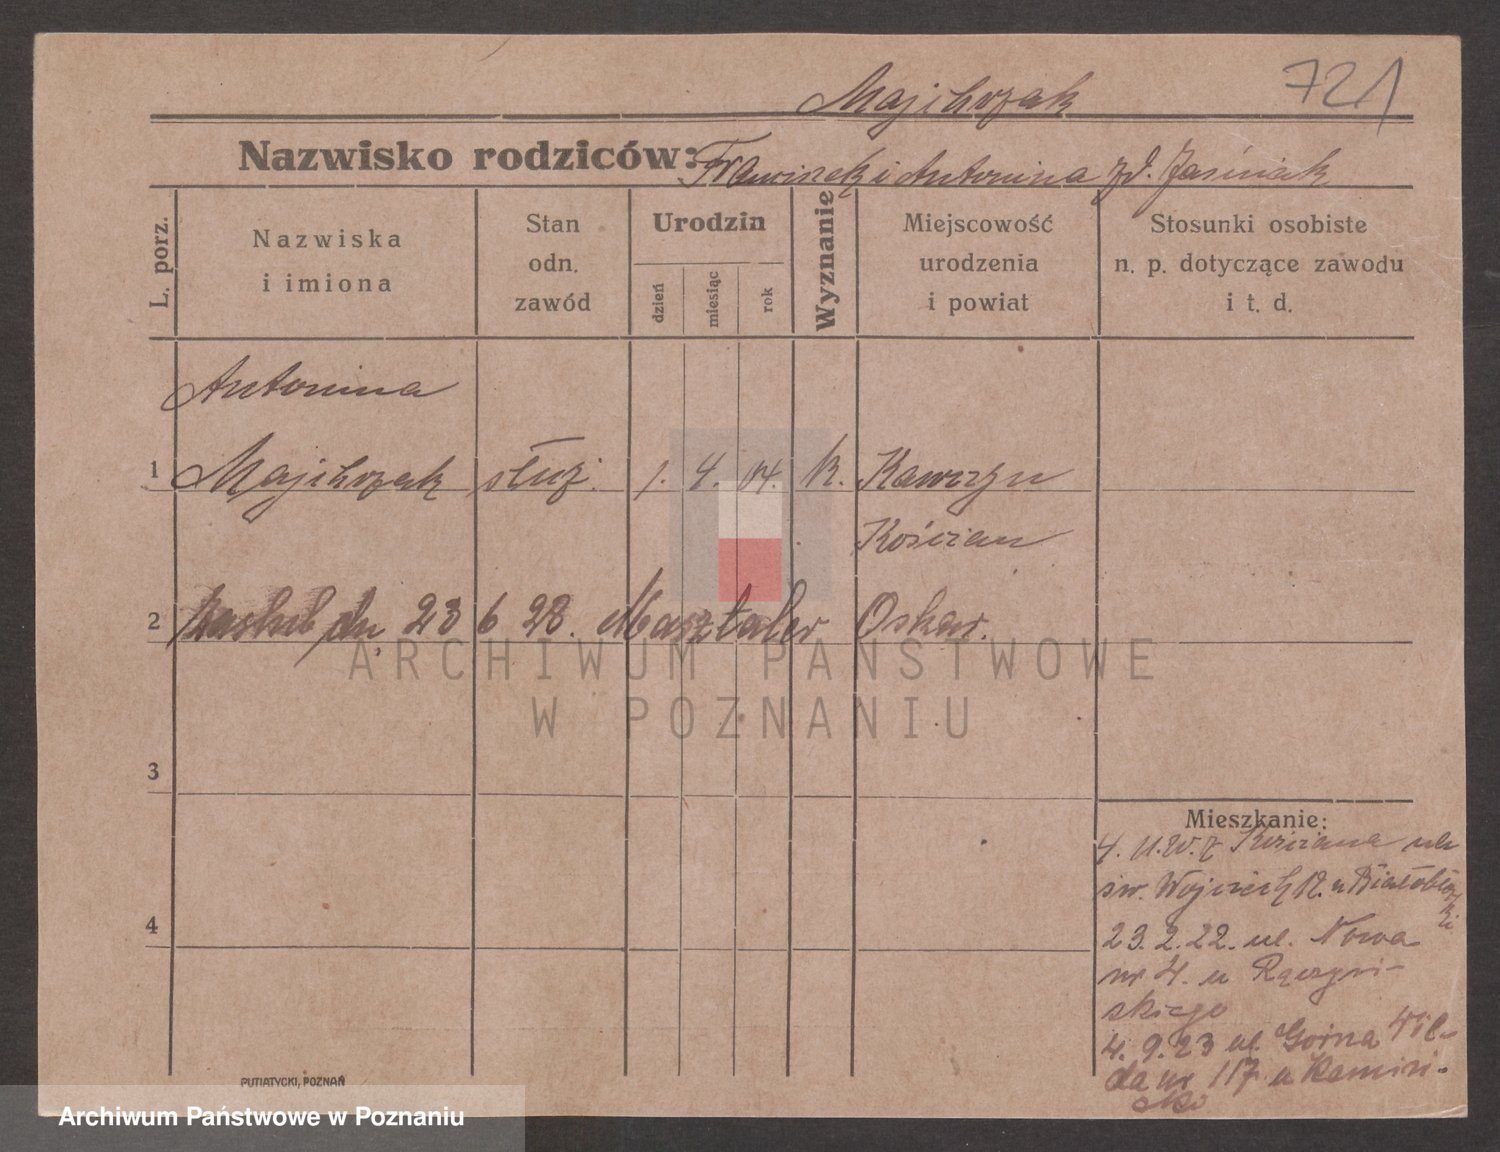 Majchrzak
721
Nazwisko rodziców: Franciszek i Antonina zd. Jaśniak
L. porz.
Nazwiska
i imiona
Stan
odn.
zawód
Urodzin
dzień
miesiąc
rok
Wyznanie
Miejscowość
urodzenia
i powiat
Stosunki osobiste
n. p. dotyczące zawodu
i t. d.
Antonina
1 Majchrzak służ. 1. 4. 04. k. Kawczyn
Kościan
2 dn. 23 6 28. Masztaler Oskar.
ARCHIWUM PAŃSTWOWE
W POZNANIU
3
4
Mieszkanie:
4. 11. 20. z Kościana ul.
św. Wojciech 12. u Białobłoc
ki
23. 2. 22. ul. Nowa
nr 4. u Rączyń-
skiego
4. 9. 23 ul. Górna Wil-
da nr 117 u Kamiń-
sko
PUTIATYCKI, POZNAŃ
Archiwum Państwowe w Poznaniu